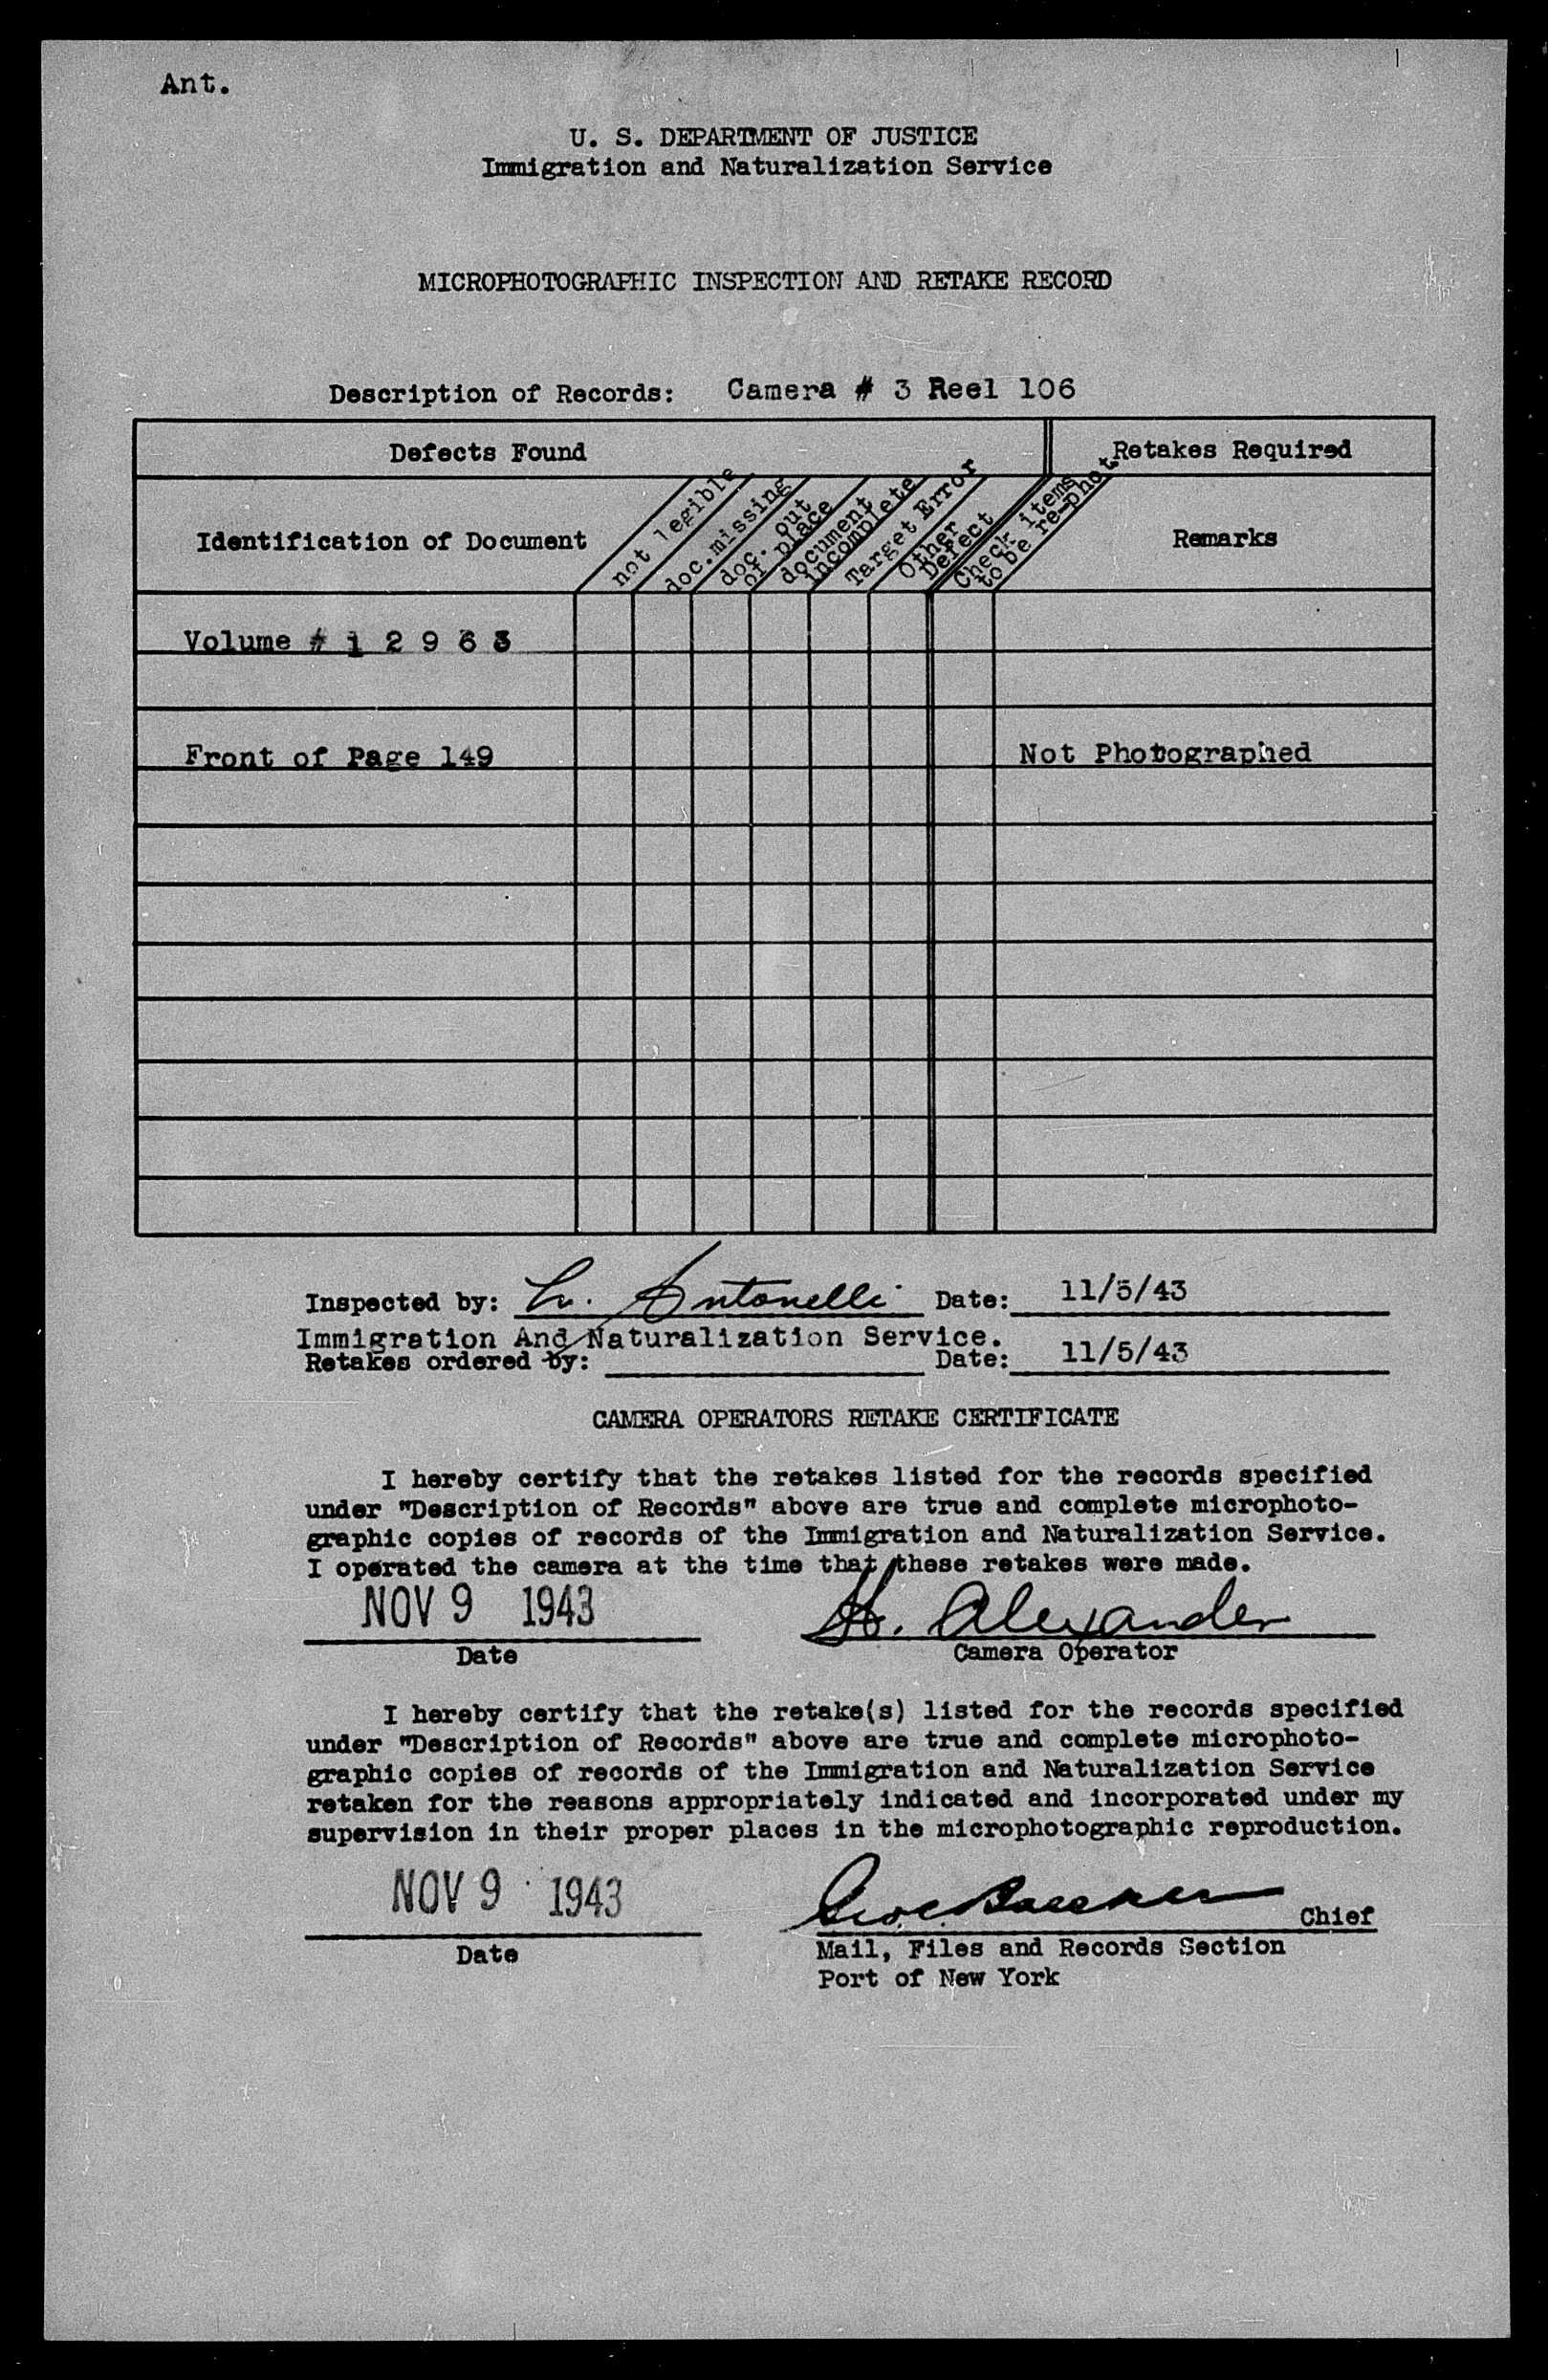 Ant.
U. S. DEPARTMENT OF JUSTICE
Immigration and Naturalization Service
MICROPHOTOGRAPHIC INSPECTION AND RETAKE RECORD
Description of Records: Camera # 3 Reel 106
Defects Found
Retakes Required
Identification of Document
not legible
doc.missing
doc. out
of place
document
incomplete
Target Error
Other
Defect
Check items
to be re-phot.
Remarks
Volume # 1 2 9 6 3
Front of Page 149 Not Photographed
Inspected by: L. Antonelli Date: 11/5/43
Immigration And Naturalization Service.
Retakes ordered by: Date: 11/5/43
CAMERA OPERATORS RETAKE CERTIFICATE
I hereby certify that the retakes listed for the records specified
under "Description of Records" above are true and complete microphoto-
graphic copies of records of the Immigration and Naturalization Service.
I operated the camera at the time that these retakes were made.
NOV 9 1943 H. Alexander
Date Camera Operator
I hereby certify that the retake(s) listed for the records specified
under "Description of Records" above are true and complete microphoto-
graphic copies of records of the Immigration and Naturalization Service
retaken for the reasons appropriately indicated and incorporated under my
supervision in their proper places in the microphotographic reproduction.
NOV 9 1943 Chief
Date Mail, Files and Records Section
Port of New York